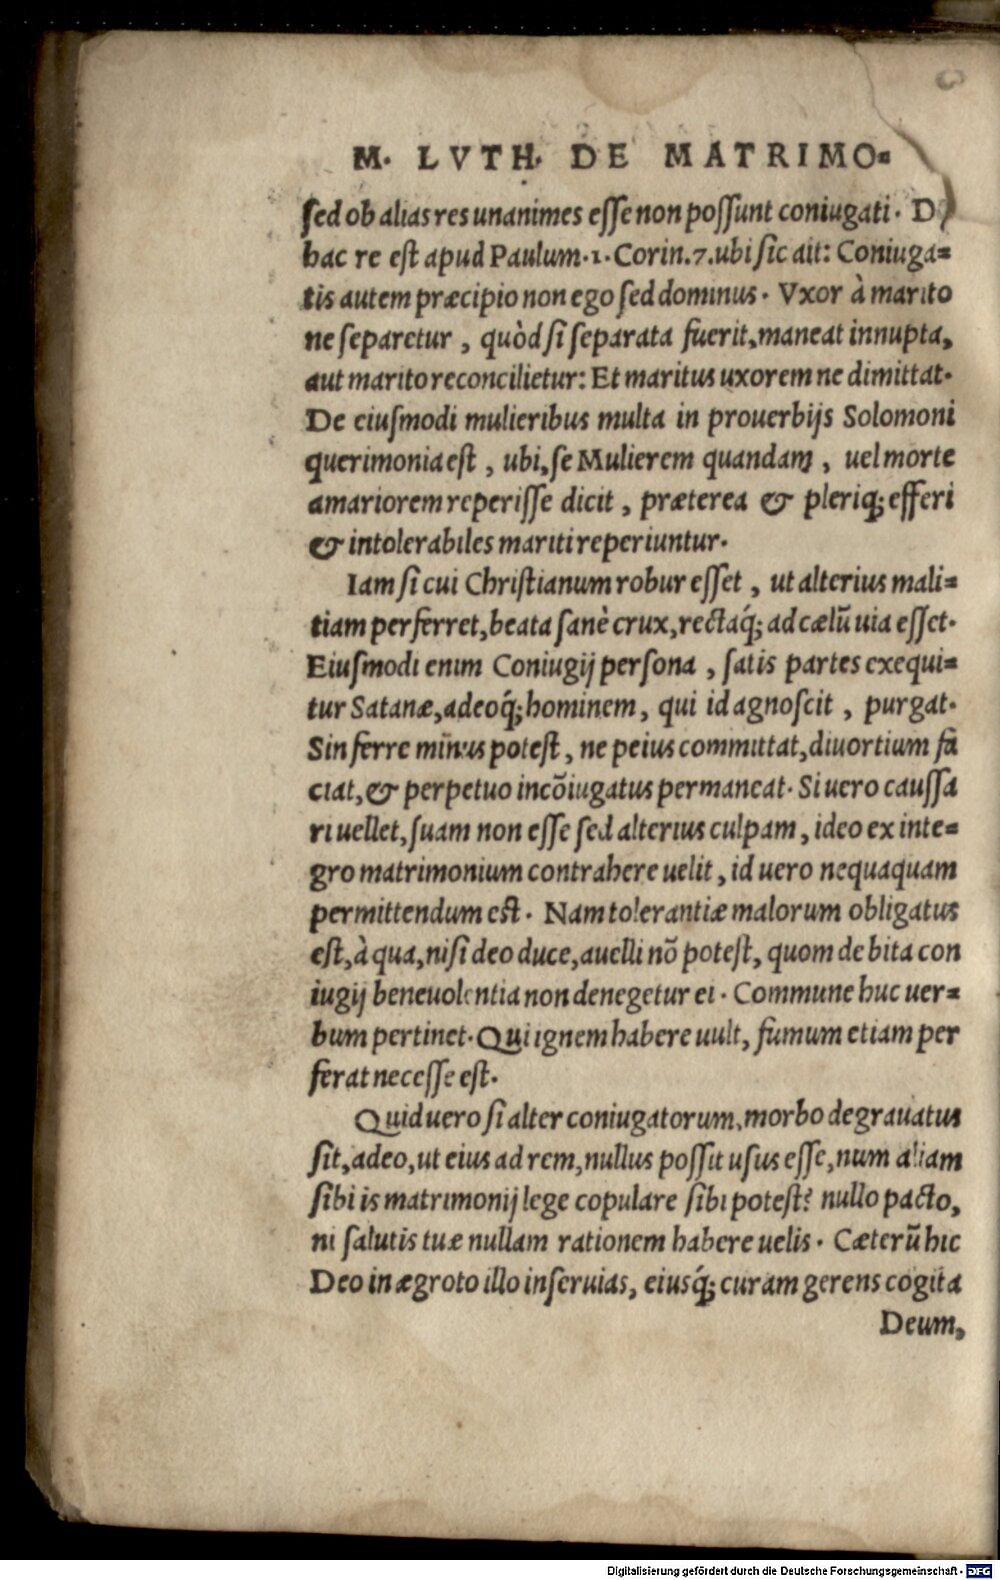 M. LVTH. DE MATRIMO-
sed ob alias res unanimes esse non possunt coniugati. D
hac re est apud Paulum. 1. Corin. 7. ubi sic ait: Coniuga-
tis autem præcipio non ego sed dominus. Vxor à marito
ne separetur, quòd si separata fuerit, maneat innupta,
aut marito reconcilietur: Et maritus uxorem ne dimittat.
De eiusmodi mulieribus multa in prouerbijs Solomoni
querimonia est, ubi, se Mulierem quandam, uel morte
amariorem reperisse dicit, præterea & pleriq; efferi
& intolerabiles mariti reperiuntur.
Iam si cui Christianum robur esset, ut alterius mali-
tiam perferret, beata sanè crux, rectaq́; ad cælũ uia esset.
Eiusmodi enim Coniugij persona, satis partes exequi-
tur Satanæ, adeoq́; hominem, qui id agnoscit, purgat.
Sin ferre minus potest, ne peius committat, diuortium fa
ciat, & perpetuo incõiugatus permaneat. Si uero caussa
ri uellet, suam non esse sed alterius culpam, ideo ex inte-
gro matrimonium contrahere uelit, id uero nequaquam
permittendum est. Nam tolerantiæ malorum obligatus
est, à qua, nisi deo duce, auelli nõ potest, quom debita con
iugij beneuolentia non denegetur ei. Commune huc uer-
bum pertinet. Qui ignem habere uult, fumum etiam per
ferat necesse est.
Quid uero si alter coniugatorum, morbo degrauatus
sit, adeo, ut eius ad rem, nullus possit usus esse, num aliam
sibi is matrimonij lege copulare sibi potest? nullo pacto,
ni salutis tuæ nullam rationem habere uelis. Cæterũ hic
Deo in ægroto illo inseruias, eiusq́; curam gerens cogita
Deum,
Digitalisierung gefördert durch die Deutsche Forschungsgemeinschaft - DFG